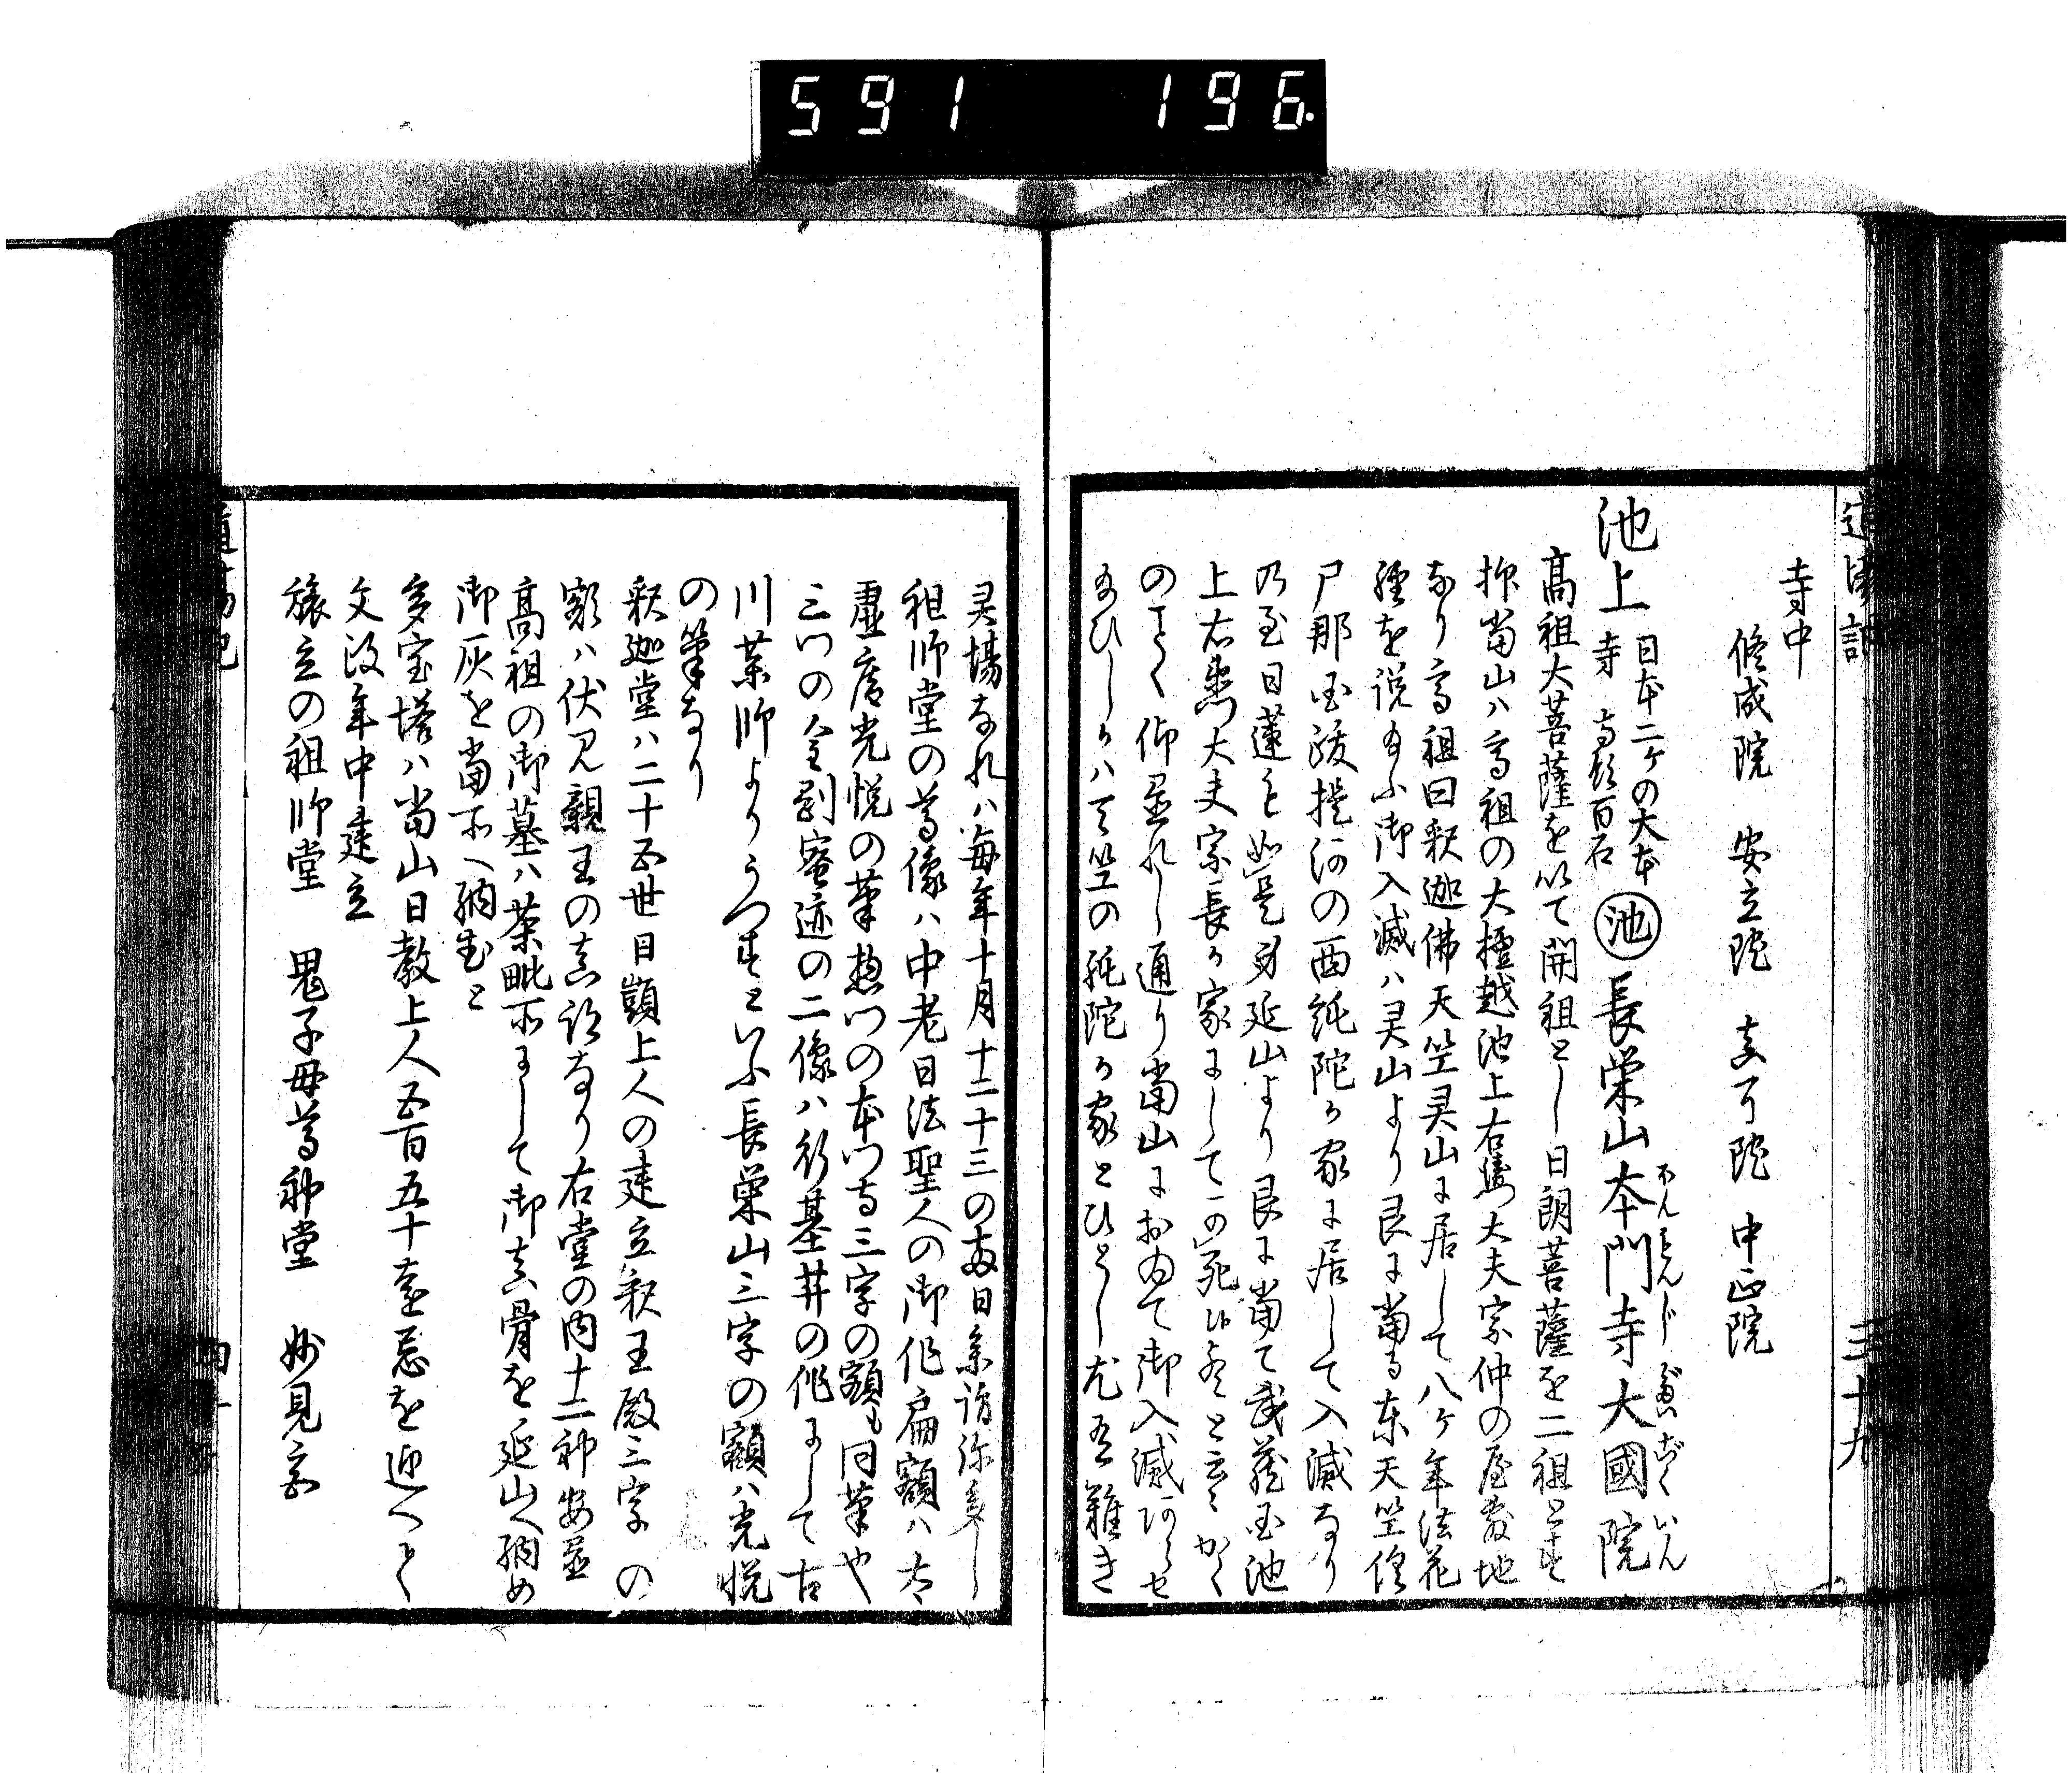 591 196
道場記 三十九
寺中
修成院 安立院 真了院 中正院
池上 日本二ケの大本寺 寺領百石 池 長栄山本門寺大國院
ほんもんじ だいこくいん
高祖大菩薩を以て開祖とし日朗菩薩を二祖とす
抑當山ハ高祖の大檀越池上右衛門大夫宗仲の屋敷地
なり高祖曰釈迦佛天竺灵山に居して八ケ年法花
經を説給ふ御入滅ハ灵山より艮に當る東天竺俱
尸那国跋提河の西純陀か家に居して入滅なり
乃至日蓮も如是身延山より艮に當て武蔵国池
上右衛門大夫宗長か家にして可死候歟と云々かく
のことく仰置れし通り當山におゐて御入滅あらせ
給ひしハ天竺の純陀か家とひとし尤有難き
灵場なれハ毎年十月十二十三の両日參詣弥多し
祖師堂の尊像ハ中老日法聖人の御作扁額ハ太
虚庵光悦の筆惣門の本門寺三字の額も同筆や
三門の金剛蜜迹の二像ハ行基井の作にして古
川薬師よりうつすといふ長栄山三字の額ハ光悦
の筆なり
釈迦堂ハ二十五世日顗上人の建立釈王殿三字の
額ハ伏見親王の真跡なり右堂の内十二神安置
高祖の御墓ハ茶毗所にして御真骨を延山へ納め
御灰を當所へ納むと
多宝塔ハ當山日教上人五百五十遠忌を迎へとく
文政年中建立
旅立の祖師堂 鬼子母尊神堂 妙見宮
道場記 四十